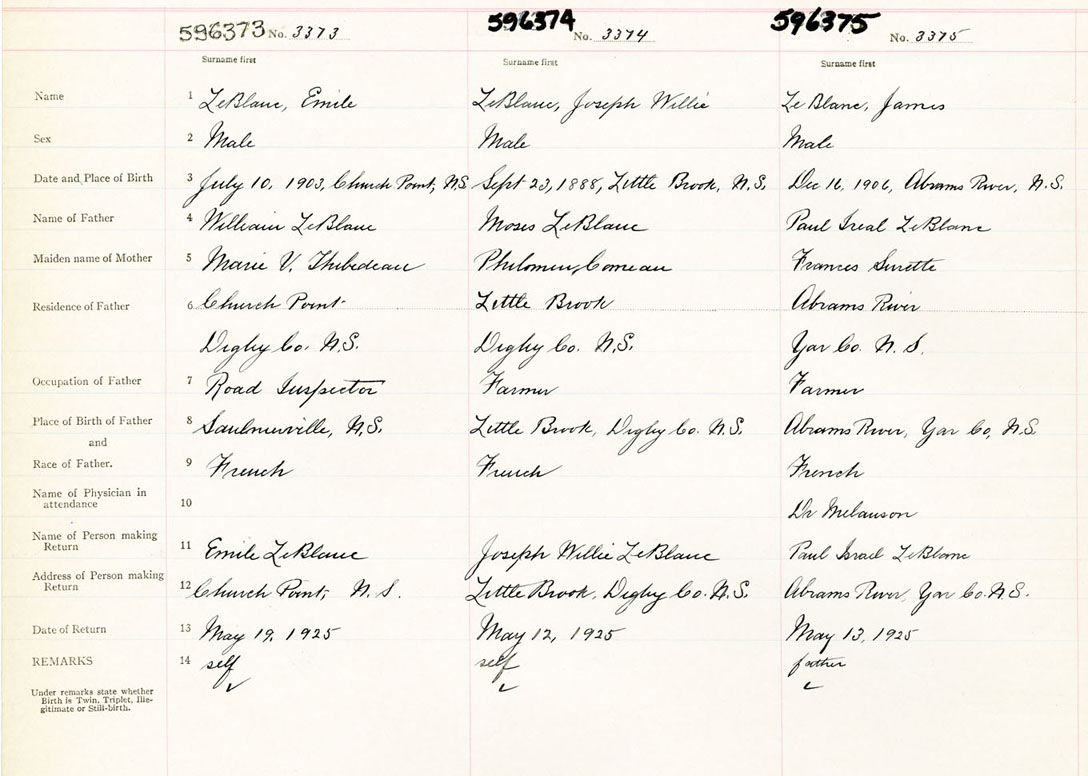 596373 No. 3373 596374 No. 3374 596375 No. 3375
Surname first Surname first Surname first
Name 1 LeBlanc, Emile LeBlanc, Joseph Willie LeBlanc, James
Sex 2 Male Male Male
Date and Place of Birth 3 July 10, 1903, Church Point, N.S. Sept 23, 1888, Little Brook, N.S. Dec 16, 1906, Abrams River, N.S.
Name of Father 4 William LeBlanc Moses LeBlanc Paul Isreal LeBlanc
Maiden name of Mother 5 Marie V. Thibedeau Philomen Comeau Frances Surette
Residence of Father 6 Church Point Little Brook Abrams River
Digby Co. N.S. Digby Co. N.S. Yar Co. N. S.
Occupation of Father 7 Road Inspector Farmer Farmer
Place of Birth of Father 8 Saulnierville, N.S. Little Brook, Digby Co. N.S. Abrams River, Yar Co, N.S.
and
Race of Father. 9 French French French
Name of Physician in
attendance 10 Dr Melanson
Name of Person making
Return 11 Emile LeBlanc Joseph Willie LeBlanc Paul Israel LeBlanc
Address of Person making
Return 12 Church Point, N. S. Little Brook, Digby Co. N.S. Abrams River, Yar Co. N.S.
Date of Return 13 May 19, 1925 May 12, 1925 May 13, 1925
REMARKS 14 self self father
Under remarks state whether
Birth is Twin, Triplet, Ille-
gitimate or Still-birth.